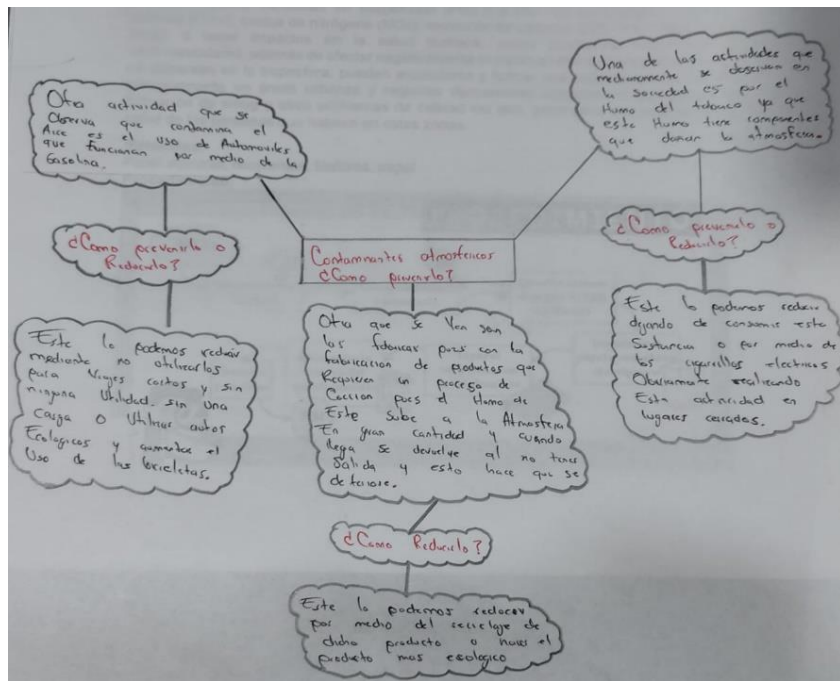 Otra actividad que se
Observa que contamina el
Aire es el uso de Automoviles
que funcionan por medio de la
Gasolina.
¿Como prevenirlo o
Reducirlo?
Este lo podemos reducir
mediante no utilizarlos
para Viajes cortos y sin
ninguna Utilidad. sin una
Carga o Utilizar autos
Ecologicos y aumentar el
Uso de las bicicletas.
Contaminantes atmosfericos
¿Como prevenirlo?
Otra que se Ven son
las fabricas pues con la
fabricacion de productos que
Requieren un proceso de
Coccion pues el Humo de
Este Sube a la Atmosfera
En gran cantidad y cuando
llega se devuelve al no tener
Salida y esto hace que se
deteriore.
¿Como Reducirlo?
Este lo podemos reducir
por medio del reciclaje de
dicho producto o hacer el
producto mas ecologico
Una de las actividades que
se observan en
la Sociedad es por el
Humo del tabaco ya que
este Humo tiene componentes
que dañan la atmosfera.
¿Como prevenirlo o
Reducirlo?
Este lo podemos reducir
dejando de consumir esta
Sustancia o por medio de
los cigarrillos electricos
Obviamente realizando
Esta actividad en
lugares cerrados.